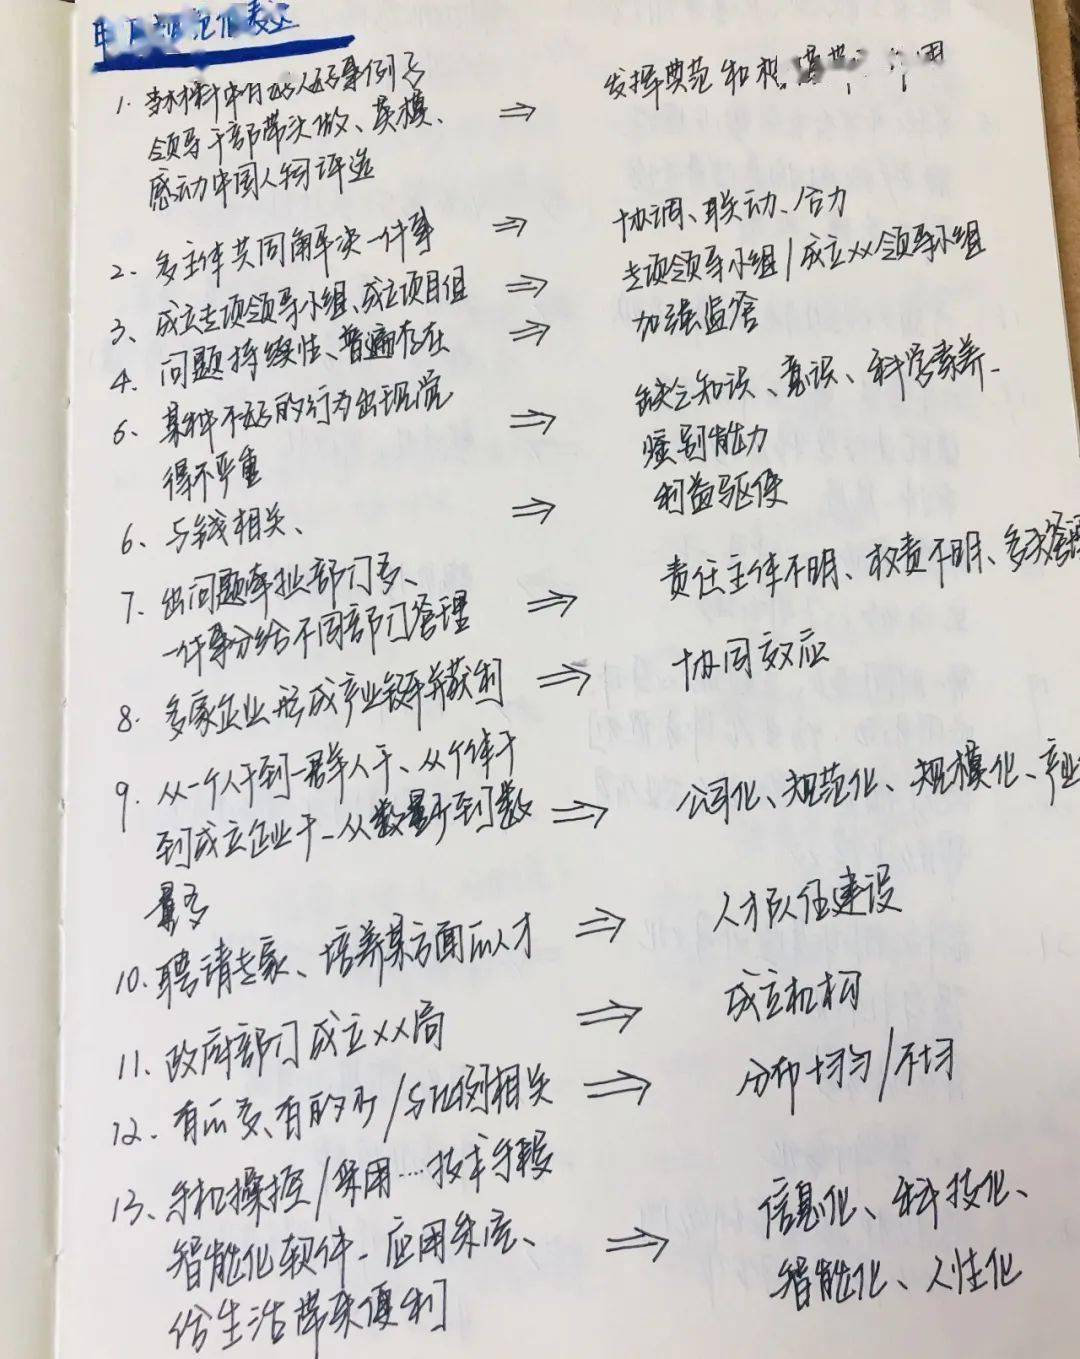 规范化表达
1. 当材料中有好人好事例子 ⇒ 发挥典范和模
领导干部带头做、英模、
感动中国人物评选
2. 多主体共同解决一件事 ⇒ 协调、联动、合力
3、成立专项领导小组、成立项目组 ⇒ 专项领导小组/成立XX领导小组
4. 问题持续性、普遍存在 ⇒ 加强监管
5、某种不好的行为出现觉 ⇒ 缺乏知识、意识、科学素养、
得不严重 鉴别能力
6、与钱相关、 ⇒ 利益驱使
7、出问题牵扯部门多、 ⇒ 责任主体不明、权责不明、多头管理
一件事分给不同部门管理
8. 多家企业形成产业链并获利 ⇒ 协同效应
9. 从一个人干到一群人干、从个体干
到成立企业干、从数量少到数 ⇒ 公司化、规范化、规模化、产业
量多
10. 聘请专家、培养某方面的人才 ⇒ 人才队伍建设
11. 政府部门成立XX局 ⇒ 成立机构
12. 有的多、有的少/与比例相关 ⇒ 分布均匀/不均
13、手机操控/采用……技术手段
智能化软件、应用系统、 ⇒ 信息化、科技化、
给生活带来便利 智能化、人性化